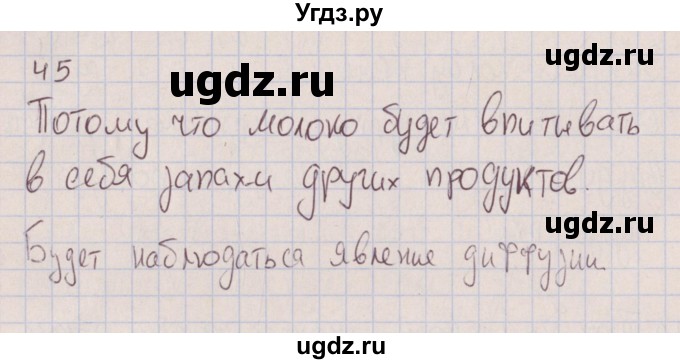 Угдз.ру
45
ugdz.ru
Потому что молоко будет впитывать
в себя запахи других продуктов.
ugdz.ru
Будет наблюдаться явление диффузии.
ugdz.ru